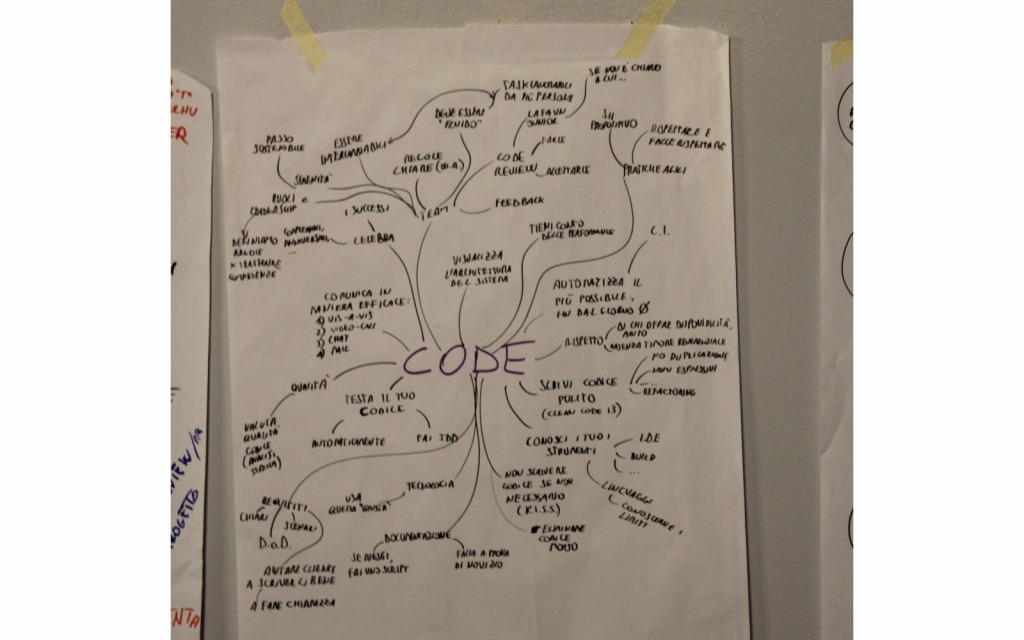 TASK LAVORABILI
DA PIÙ PERSONE
SE NON È CHIARO
A LUI...
DEVE ESSERE
"FLUIDO"
LA FA UN
JUNIOR
SII
PROPOSITIVO
RISPETTARE E
FARLE RISPETTARE
PASSO
SOSTENIBILE
ESSERE
INTERCAMBIABILI
REGOLE
CHIARE
CODE
REVIEW
FARLE
ACCETTARLE
PRATICHE AGILI
SERENITÀ
RUOLI E
LEADERSHIP
I SUCCESSI
TEAM
FEEDBACK
DEFINIAMO
REGOLE
X TRASMETTERE
CONOSCENZE
COMPLEANNI,
ANNIVERSARI
...
CELEBRA
TIENI CONTO
DELLE PERFORMANCE
C.I.
VISUALIZZA
L'ARCHITETTURA
DEL SISTEMA
AUTOMATIZZA IL
PIÙ POSSIBILE,
FIN DAL GIORNO Ø
COMUNICA IN
MANIERA EFFICACE:
1) VIS-A-VIS
2) VIDEO-CALL
3) CHAT
4) MAIL
RISPETTO
DI CHI OFFRE DISPONIBILITÀ,
AIUTO
SENZA TIMORE REVERENZIALE
CODE
NO DUPLICAZIONE
NOMI ESPRESSIVI
...
REFACTORING
QUALITÀ
TESTA IL TUO
CODICE
SCRIVI CODICE
PULITO
(CLEAN CODE 13)
VALUTA
QUALITÀ
CODICE
(ANALISI
STATICA)
AUTOMATICAMENTE
FAI TDD
CONOSCI I TUOI
STRUMENTI
IDE
BUILD
...
LINGUAGGI
CONOSCERNE I
LIMITI
NON SCRIVERE
CODICE SE NON
NECESSARIO
(K.I.S.S.)
ELIMINARE
CODICE
MORTO
TECNOLOGIA
USA
QUELLA "GIUSTA"
REQUISITI
CHIARI
SCENARI
D.o.D.
DOCUMENTAZIONE
SE RIESCI,
FAI UNO SCRIPT
FALLA A PROVA
DI NOVIZIO
AIUTARE CLIENTE
A SCRIVERLI BENE
A FARE CHIAREZZA